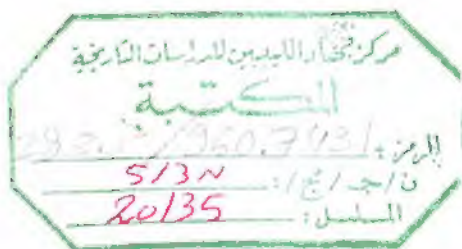 مركز جهاد الليبيين للدراسات التاريخية
المكتبة
الرمز:
ن/ج/نج/: 5/3N
المسلسل: 20135